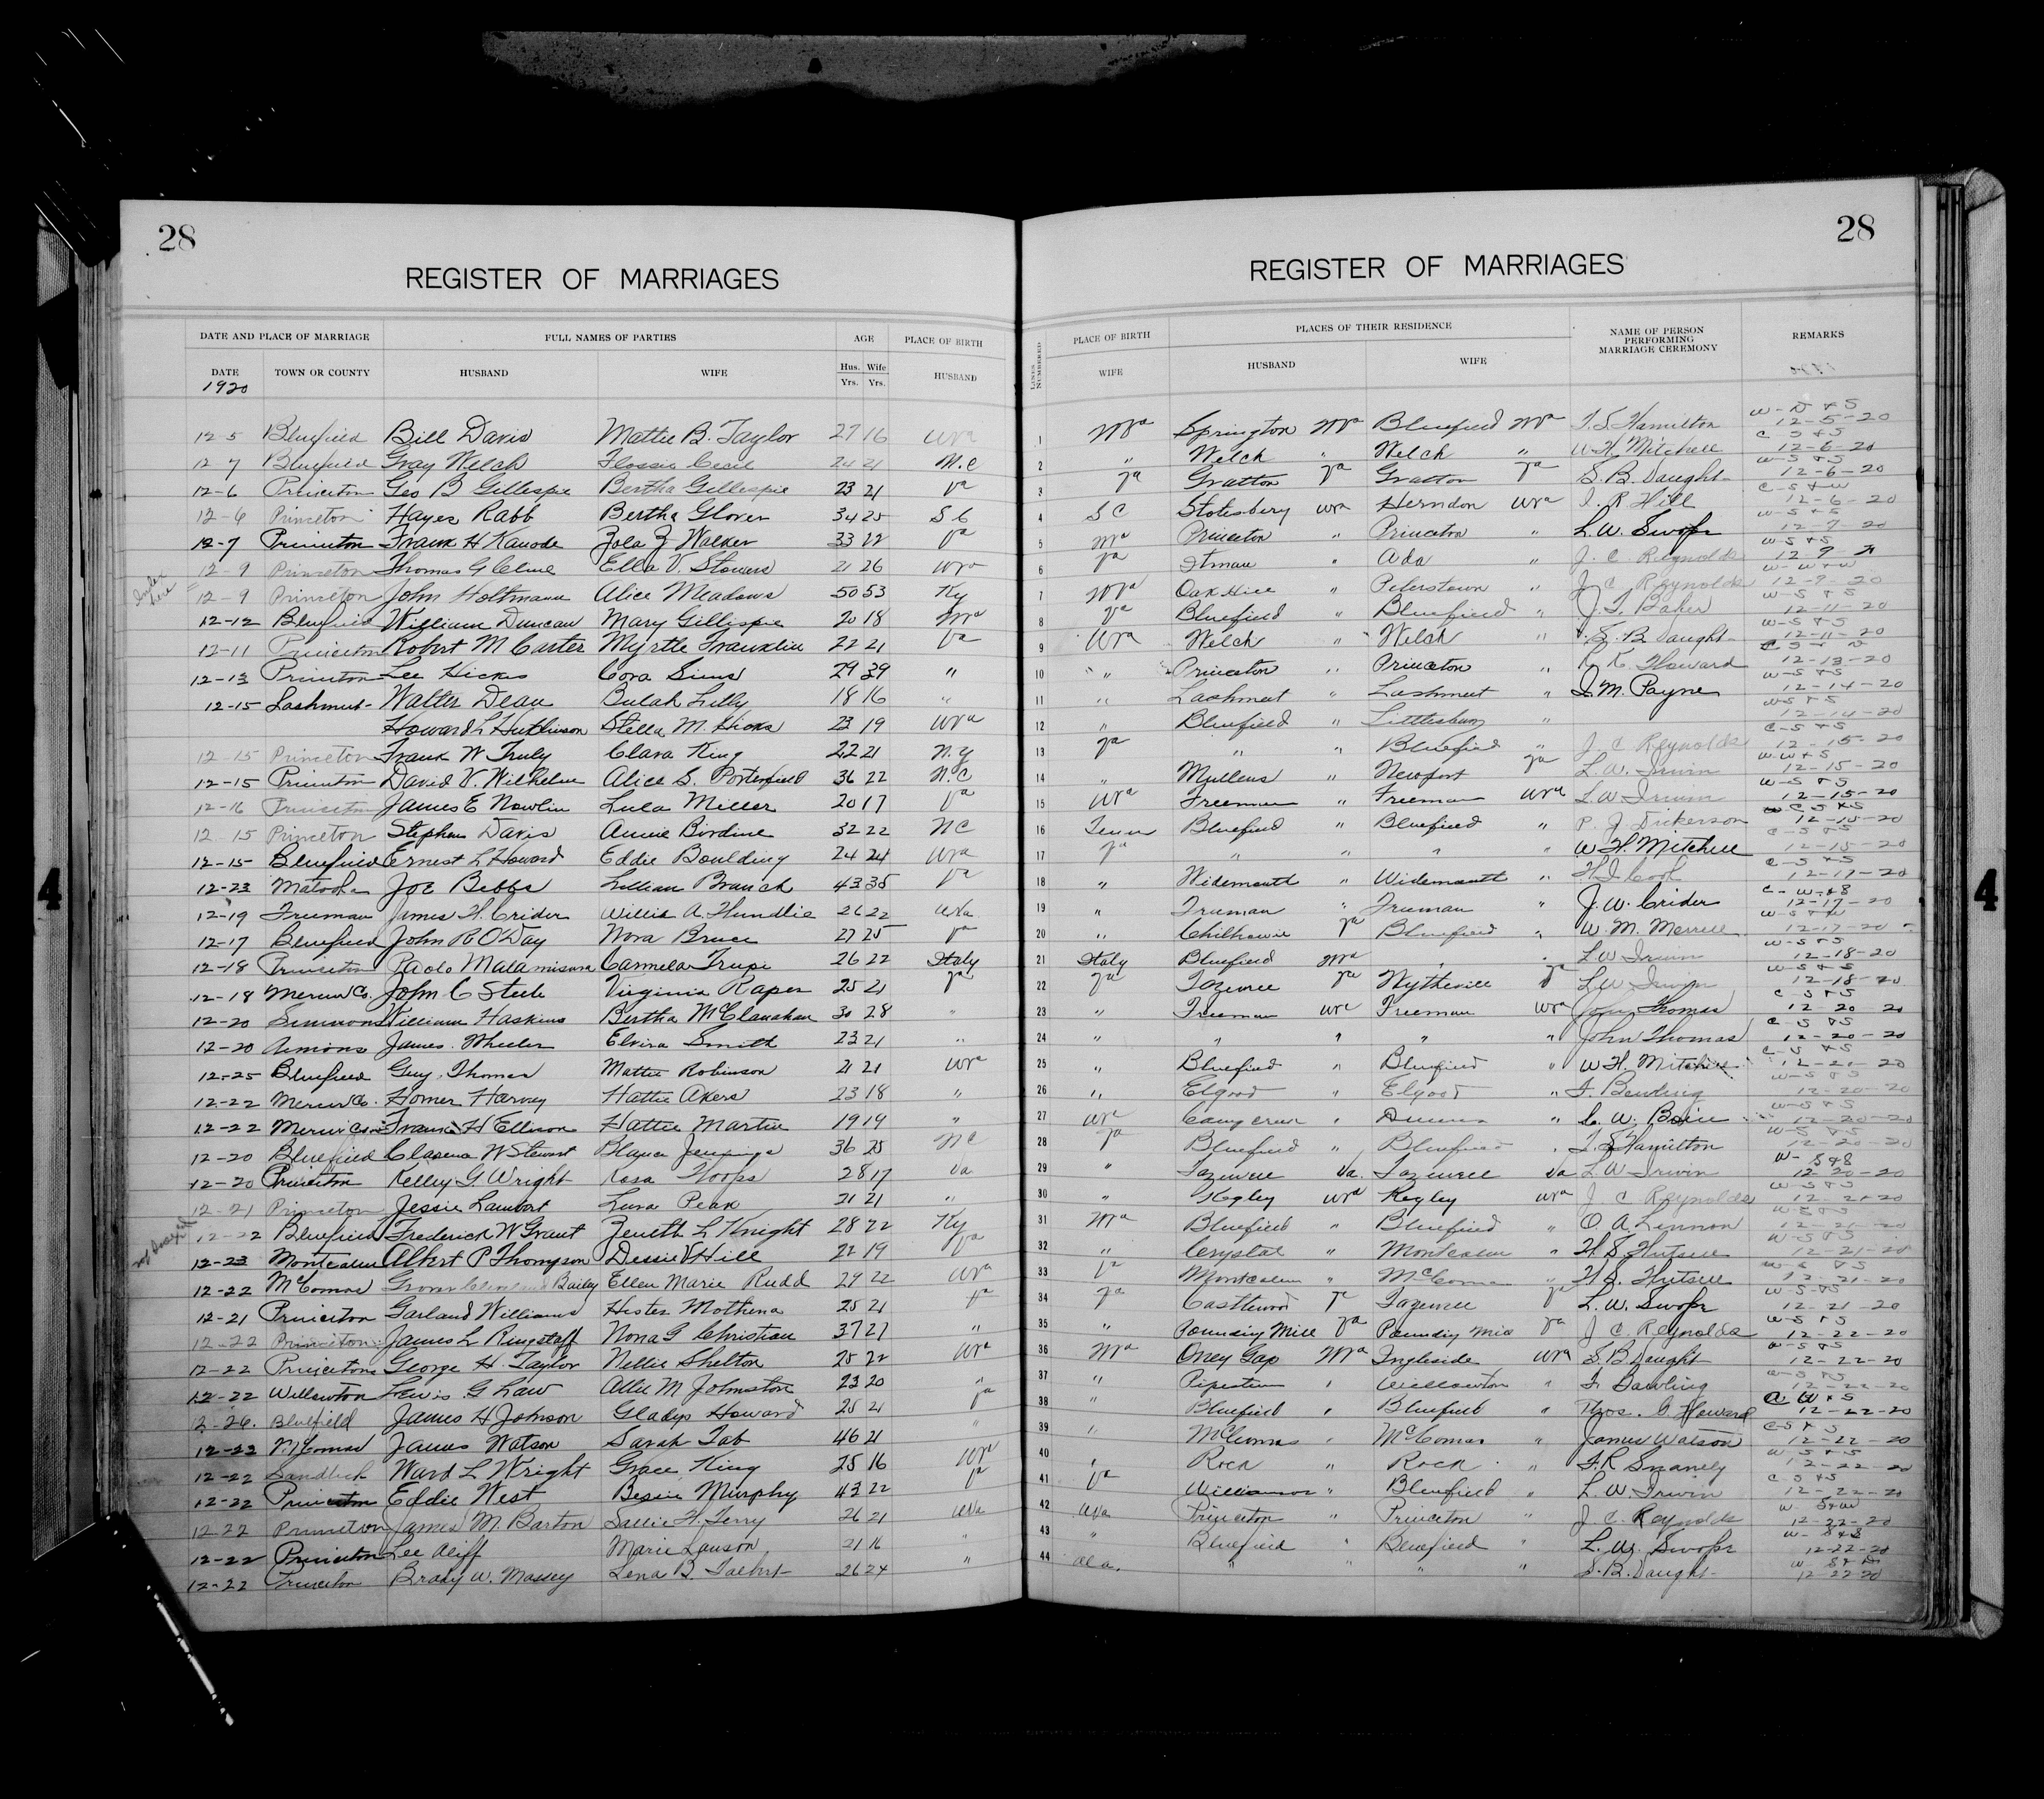 28
REGISTER OF MARRIAGES
DATE AND PLACE OF MARRIAGE FULL NAMES OF PARTIES AGE PLACE OF BIRTH
DATE TOWN OR COUNTY HUSBAND WIFE Hus. Wife HUSBAND
1920 Yrs. Yrs.
12-5 Bluefield Bill Davis Mattie B. Taylor 27 16 Wva
12-7 Bluefield Gray Welch Flossie Cecil 24 21 N.C
12-6 Princeton Geo B Gillespie Bertha Gillespie 23 21 Va
12-6 Princeton Hayes Rabb Bertha Glover 34 25 S C
12-7 Princeton Frank H Kanode Zola Z Walker 33 22 Va
12-9 Princeton Thomas G Cline Ella V. Stowers 21 26 Wva
Index here
12-9 Princeton John Holtmann Alice Meadows 50 53 Ky
12-12 Bluefield William Duncan Mary Gillespie 20 18 Wva
12-11 Princeton Robert M Carter Myrtle Franklin 22 21 Va
12-13 Princeton Lee Hicks Cora Sims 29 39 "
12-15 Lashmut Walter Dean Bulah Lilly 18 16 "
Howard L Hutchinson Stella M. Hicks 23 19 Wva
12-15 Princeton Frank W Truly Clara King 22 21 N.Y
12-15 Princeton David V. Wilhelm Alice S. Porterfield 36 22 N.C
12-16 Princeton James E Nowlin Lula Miller 20 17 Va
12-15 Princeton Stephen Davis Annie Birdine 32 22 N C
12-15 Bluefield Ernest L Howard Eddie Boulding 24 24 Wva
12-23 Matoaka Joe Bebbs Lillian Branch 43 35 Va
12-19 Freeman James H. Crider Willie A. Hundlie 26 22 WVa
12-17 Bluefield John R O'Day Nora Bruce 27 25 Va
12-18 Princeton Paolo Malamisura Carmela Trupi 26 22 Italy
12-18 Mercer Co. John C Steele Virginia Raper 25 21 Va
12-20 Simmons William Haskins Bertha McClanahan 30 28 "
12-20 Simons James Wheeler Elvira Smith 23 21 "
12-25 Bluefield Guy Thomas Mattie Robinson 21 21 Wva
12-22 Mercer Co. Homer Harvey Hattie Akers 23 18 "
12-22 Mercer Co Frank H Ellison Hattie Martin 19 19 "
12-20 Bluefield Clarence W Stewart Blanca Jennings 36 25 N C
12-20 Princeton Kelley G Wright Rosa Hoops 28 17 Va
12-21 Princeton Jessie Lambert Lura Peak 21 21 "
12-22 Bluefield Frederick W Grant Zenith L Knight 28 22 Ky
12-23 Montcalm Albert P Thompson Dessie V Hill 22 19 Va
12-22 McComas Grover Cleveland Bailey Ellen Marie Rudd 29 22 Wva
12-21 Princeton Garland Williams Hester Mothena 25 21 Va
12-22 Princeton James L Ringstaff Nona G Christian 37 27 "
12-22 Princeton George H. Taylor Nellie Shelton 25 22 Wva
12-22 Willowton Lewis G Law Allie M Johnston 23 20 "
12-26. Bluefield James H Johnson Gladys Howard 25 21 Va
12-22 McComas James Watson Sarah Tab 46 21 "
12-22 Sandlick Ward L Wright Grace King 25 16 Wva
12-22 Princeton Eddie West Bessie Murphy 43 22 Va
12-22 Princeton James M. Barton Sallie H. Terry 26 21 WVa
12-22 Princeton Lee Aliff Marie Lawson 21 16 "
12-22 Princeton Brady W. Massey Lena B. Talbert 26 24 "
28
REGISTER OF MARRIAGES
LINES NUMBERED PLACE OF BIRTH PLACES OF THEIR RESIDENCE NAME OF PERSON PERFORMING MARRIAGE CEREMONY REMARKS
WIFE HUSBAND WIFE
1 Wva Springton Wva Bluefield Wva T.S. Hamilton W-D & S 12-5-20
2 " Welch " Welch " W H Mitchell C S & S 12-6-20
3 Va Gratton Va Gratton Va S. B. Vaught W-S & S 12-6-20
4 S C Stotesbery Wva Herndon Wva J. R Hill C-S & W 12-6-20
5 Wva Princeton " Princeton " L. W. Swope W-S & S 12-7-20
6 Va Itman " Ada " J. C. Reynolds W-S & S 12-9-20
7 Wva Oak Hill " Peterstown " J C Reynolds W-W & W 12-9-20
8 Va Bluefield " Bluefield " J. T. Baker W-S & S 12-11-20
9 Wva Welch " Welch " S. B Vaught W-S & S 12-11-20
10 " Princeton " Princeton " R. K. Howard C S & D 12-13-20
11 " Lashmut " Lashmut " I. M. Payne W-S & S 12-14-20
12 " Bluefield " Littlesburg " W-S & S 12-14-20
13 Va " " Bluefield " J. C Reynolds C-S & S 12-15-20
14 " Mullens " Newport Va L. W. Irwin W-W & S 12-15-20
15 Wva Freeman " Freeman Wva L W Irwin W-S & S 12-15-20
16 Tenn Bluefield " Bluefield " P. J Dickerson C S & S 12-15-20
17 Va " " " " W H. Mitchell C-S & S 12-15-20
18 " Widemouth " Widemouth " H I Cook C-S & S 12-17-20
19 " Freeman " Freeman " J. W. Crider C-W & S 12-17-20
20 " Chilhowie Va Bluefield " W. M. Morrell W-S & W 12-17-20
21 Italy Bluefield Wva " " L W Irwin W-S & S 12-18-20
22 Va Tazewell Va Wytheville Va L W Irwin W-S & S 12-18-20
23 " Freeman Wva Freeman Wva John Thomas C S & S 12 20 20
24 " " " " " John Thomas C-S & S 12-20-20
25 " Bluefield " Bluefield " W H. Mitchell C-S & S 12-21-20
26 " Elgood " Elgood " F. Bowling W-S & S 12-20-20
27 Wva Camp creek " Dunns " C. W. Bain W-S & S 12-20-20
28 Va Bluefield " Bluefield " T. S Hamilton W-S & S 12-20-20
29 " Tazewell Va. Tazewell Va L W Irwin W- S & S 12 20-20
30 " Kegley Wva Kegley Wva J. C Reynolds W-S & S 12-21-20
31 Wva Bluefield " Bluefield " O. A Lennon W-S & S 12-21-20
32 " Crystal " Montcalm " H S Hutsell W-S & S 12-21-20
33 Va Montcalm " McComas " H S. Hutsell W-S & S 12-21-20
34 Va Castlewood Va Tazewell Va L. W. Swope W-S & S 12-21-20
35 " Pounding Mill Va Pounding Mill Va J C Reynolds W-S & S 12-22-20
36 Wva Oney Gap Wva Ingleside Wva S. B Vaught W-S & S 12-22-20
37 " Pipestem " Willowton " F. Bowling W-S & S 12-22-20
38 " Bluefield " Bluefield " Thos. G. Howard C W & S 12-22-20
39 " McComas " McComas " James Watson C S & S 12-22-20
40 " Rock " Rock " F. R Snavely W-S & S 12-22-20
41 Va Williamson " Bluefield " L. W. Irwin C-S & S 12-22-20
42 WVa Princeton " Princeton " J C. Reynolds W- S & W 12-22-20
43 " Bluefield " Bluefield " L. W. Swope W- S & S 12-22-20
44 Ala. " " " " S. B. Vaught W S & D 12-22-20
4
4